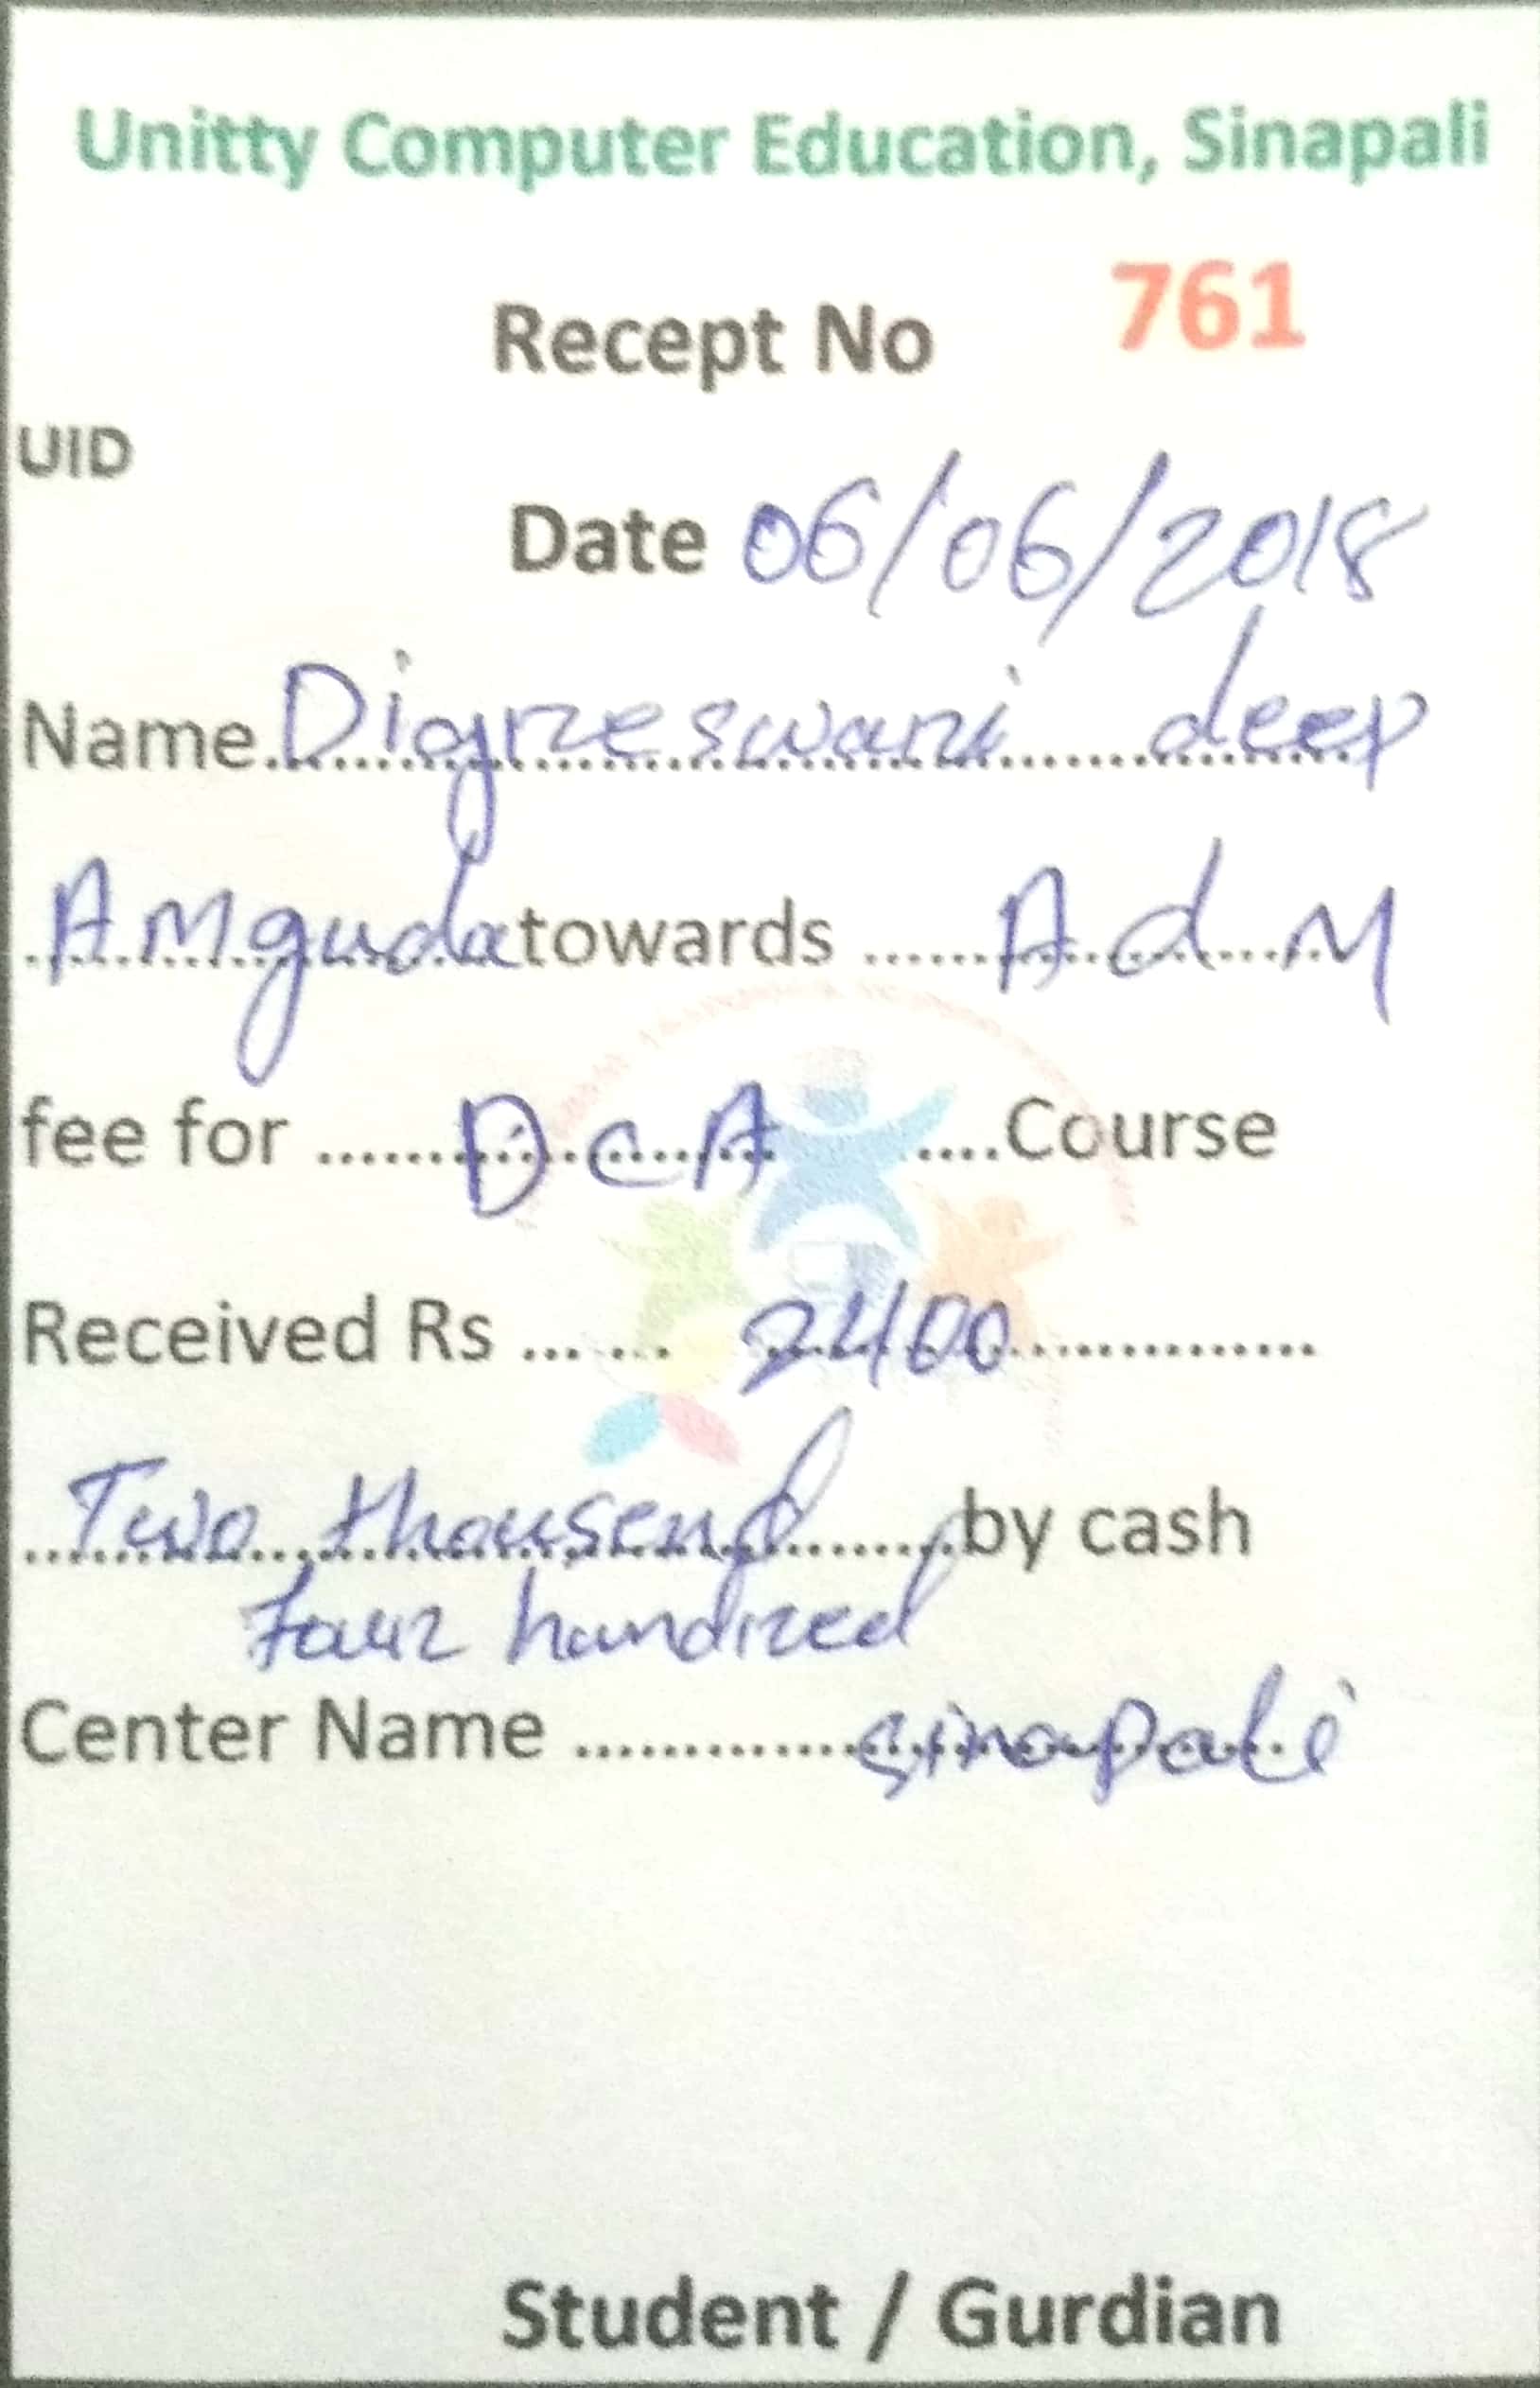 Unitty Computer Education, Sinapali
Recept No 761
UID
Date 06/06/2018
Name.Digreswari deep
Amguda towards ...... A d M
fee for ...... D C A ....Course
Received Rs ... ... 2400...............
Two thousend by cash
four hundred
Center Name ............. sinapali
Student / Gurdian